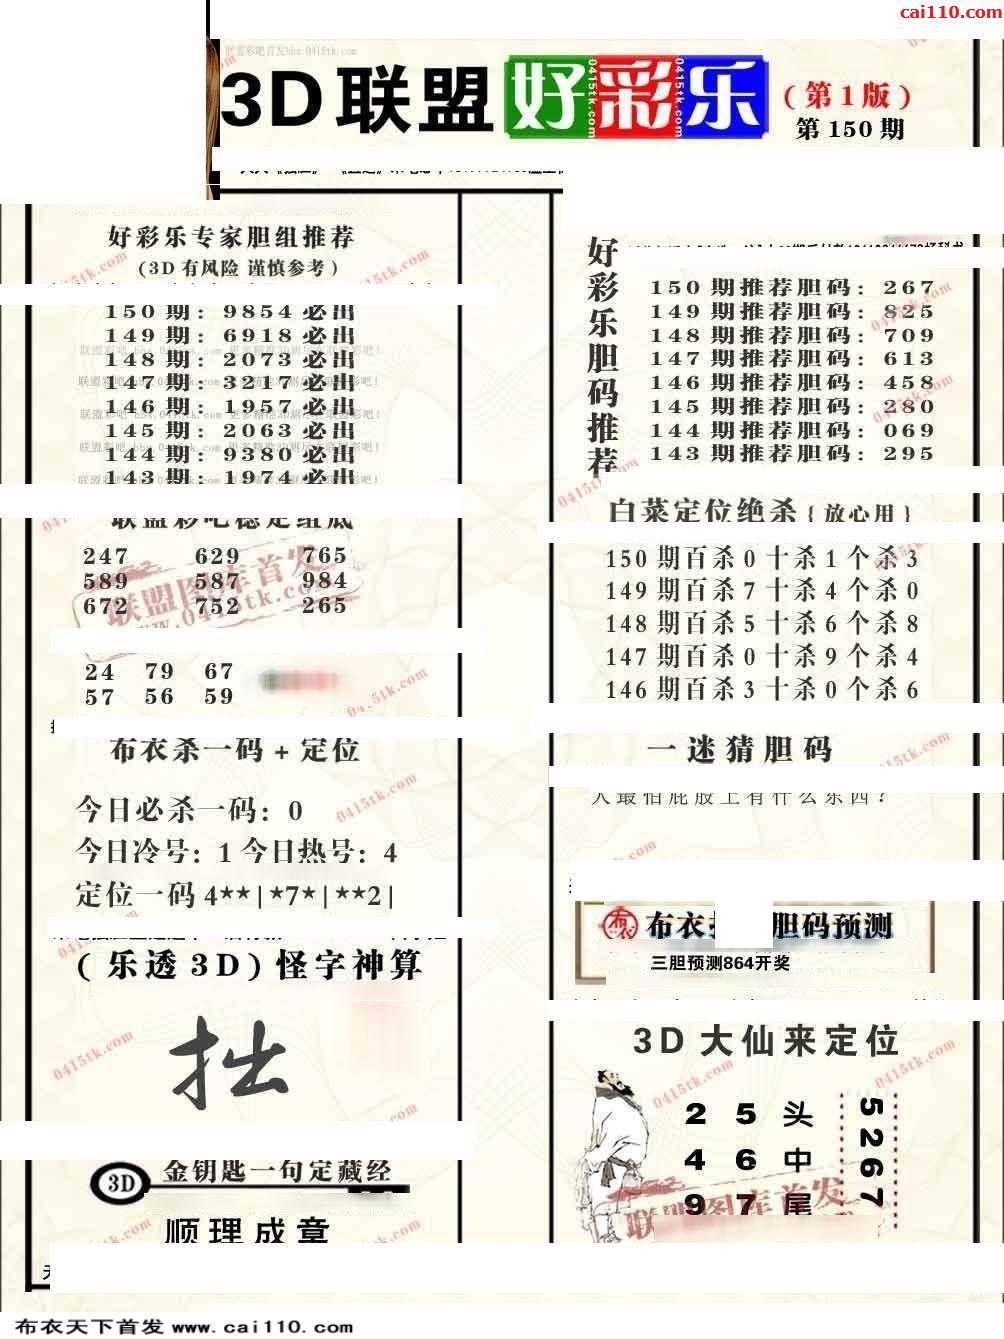 cai110.com
3D联盟 好彩乐 (第1版)
第150期
好彩乐专家胆组推荐
(3D有风险 谨慎参考)
150期: 9854必出
149期: 6918必出
148期: 2073必出
147期: 3217必出
146期: 1957必出
145期: 2063必出
144期: 9380必出
143期: 1974必出
联盟彩吧稳定组底
247 629 765
589 587 984
672 752 265
24 79 67
57 56 59
布衣杀一码+定位
今日必杀一码: 0
今日冷号: 1 今日热号: 4
定位一码 4**|*7*|**2|
(乐透3D)怪字神算
拙
3D 金钥匙一句定藏经
顺理成章
好彩乐胆码推荐
150期推荐胆码: 267
149期推荐胆码: 825
148期推荐胆码: 709
147期推荐胆码: 613
146期推荐胆码: 458
145期推荐胆码: 280
144期推荐胆码: 069
143期推荐胆码: 295
白菜定位绝杀{放心用}
150期百杀0十杀1个杀3
149期百杀7十杀4个杀0
148期百杀5十杀6个杀8
147期百杀0十杀9个杀4
146期百杀3十杀0个杀6
一迷猜胆码
人最怕屁股上有什么东西?
布衣 胆码预测
三胆预测864开奖
3D大仙来定位
2 5头
4 6中
9 7尾
5267
联盟图库首发
0415tk.com
布衣天下首发 www.cai110.com